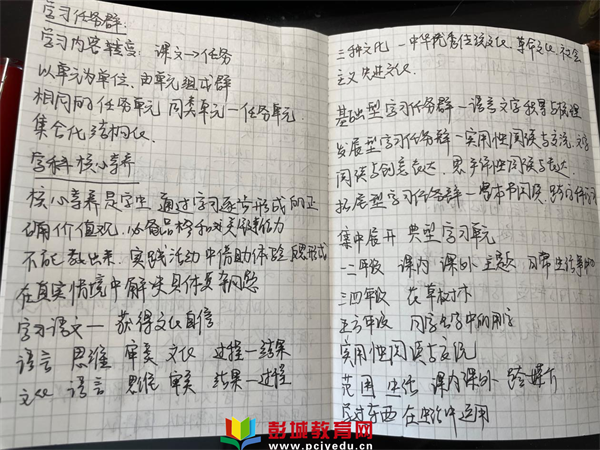 学习任务群:
学习内容转变: 课文→任务
以单元为单位,由单元组成群
相同的任务单元 同类单元—任务单元
集合化 结构化.
学科核心素养
核心素养是学生 通过学习逐步形成的正
确价值观,必备品格和关键能力
不能教出来,实践活动中借助体验 形成
在真实情境中解决具体复杂问题
学习语文— 获得文化自信
语言 思维 审美 文化 过程—结果
文化 语言 思维 审美 结果—过程
三种文化 —中华优秀传统文化,革命文化,社会
主义先进文化.
基础型学习任务群—语言文字积累与梳理
发展型学习任务群—实用性阅读与交流,文学
阅读与创意表达,思辨性阅读与表达.
拓展型学习任务群—整本书阅读,跨学科学习
集中展开 典型学习单元
一二年级 课内 课外 主题 日常生活
三四年级 花草树木
五六年级 同学名字中的用字
实用性阅读与交流
范围 生活 课内课外 跨媒介
东西 在生活中运用
彭城教育网
www.pcjyedu.cn